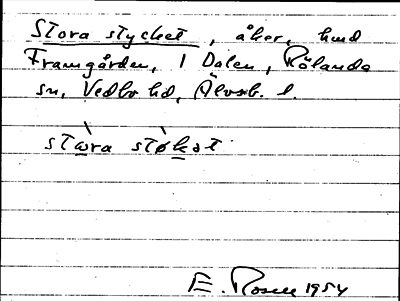 Stora stycket, åker, hmd
Framgården, 1 Dalen, Rölanda
sn, Vedbo hd, Älvsb. l.
E. Rosell 1954